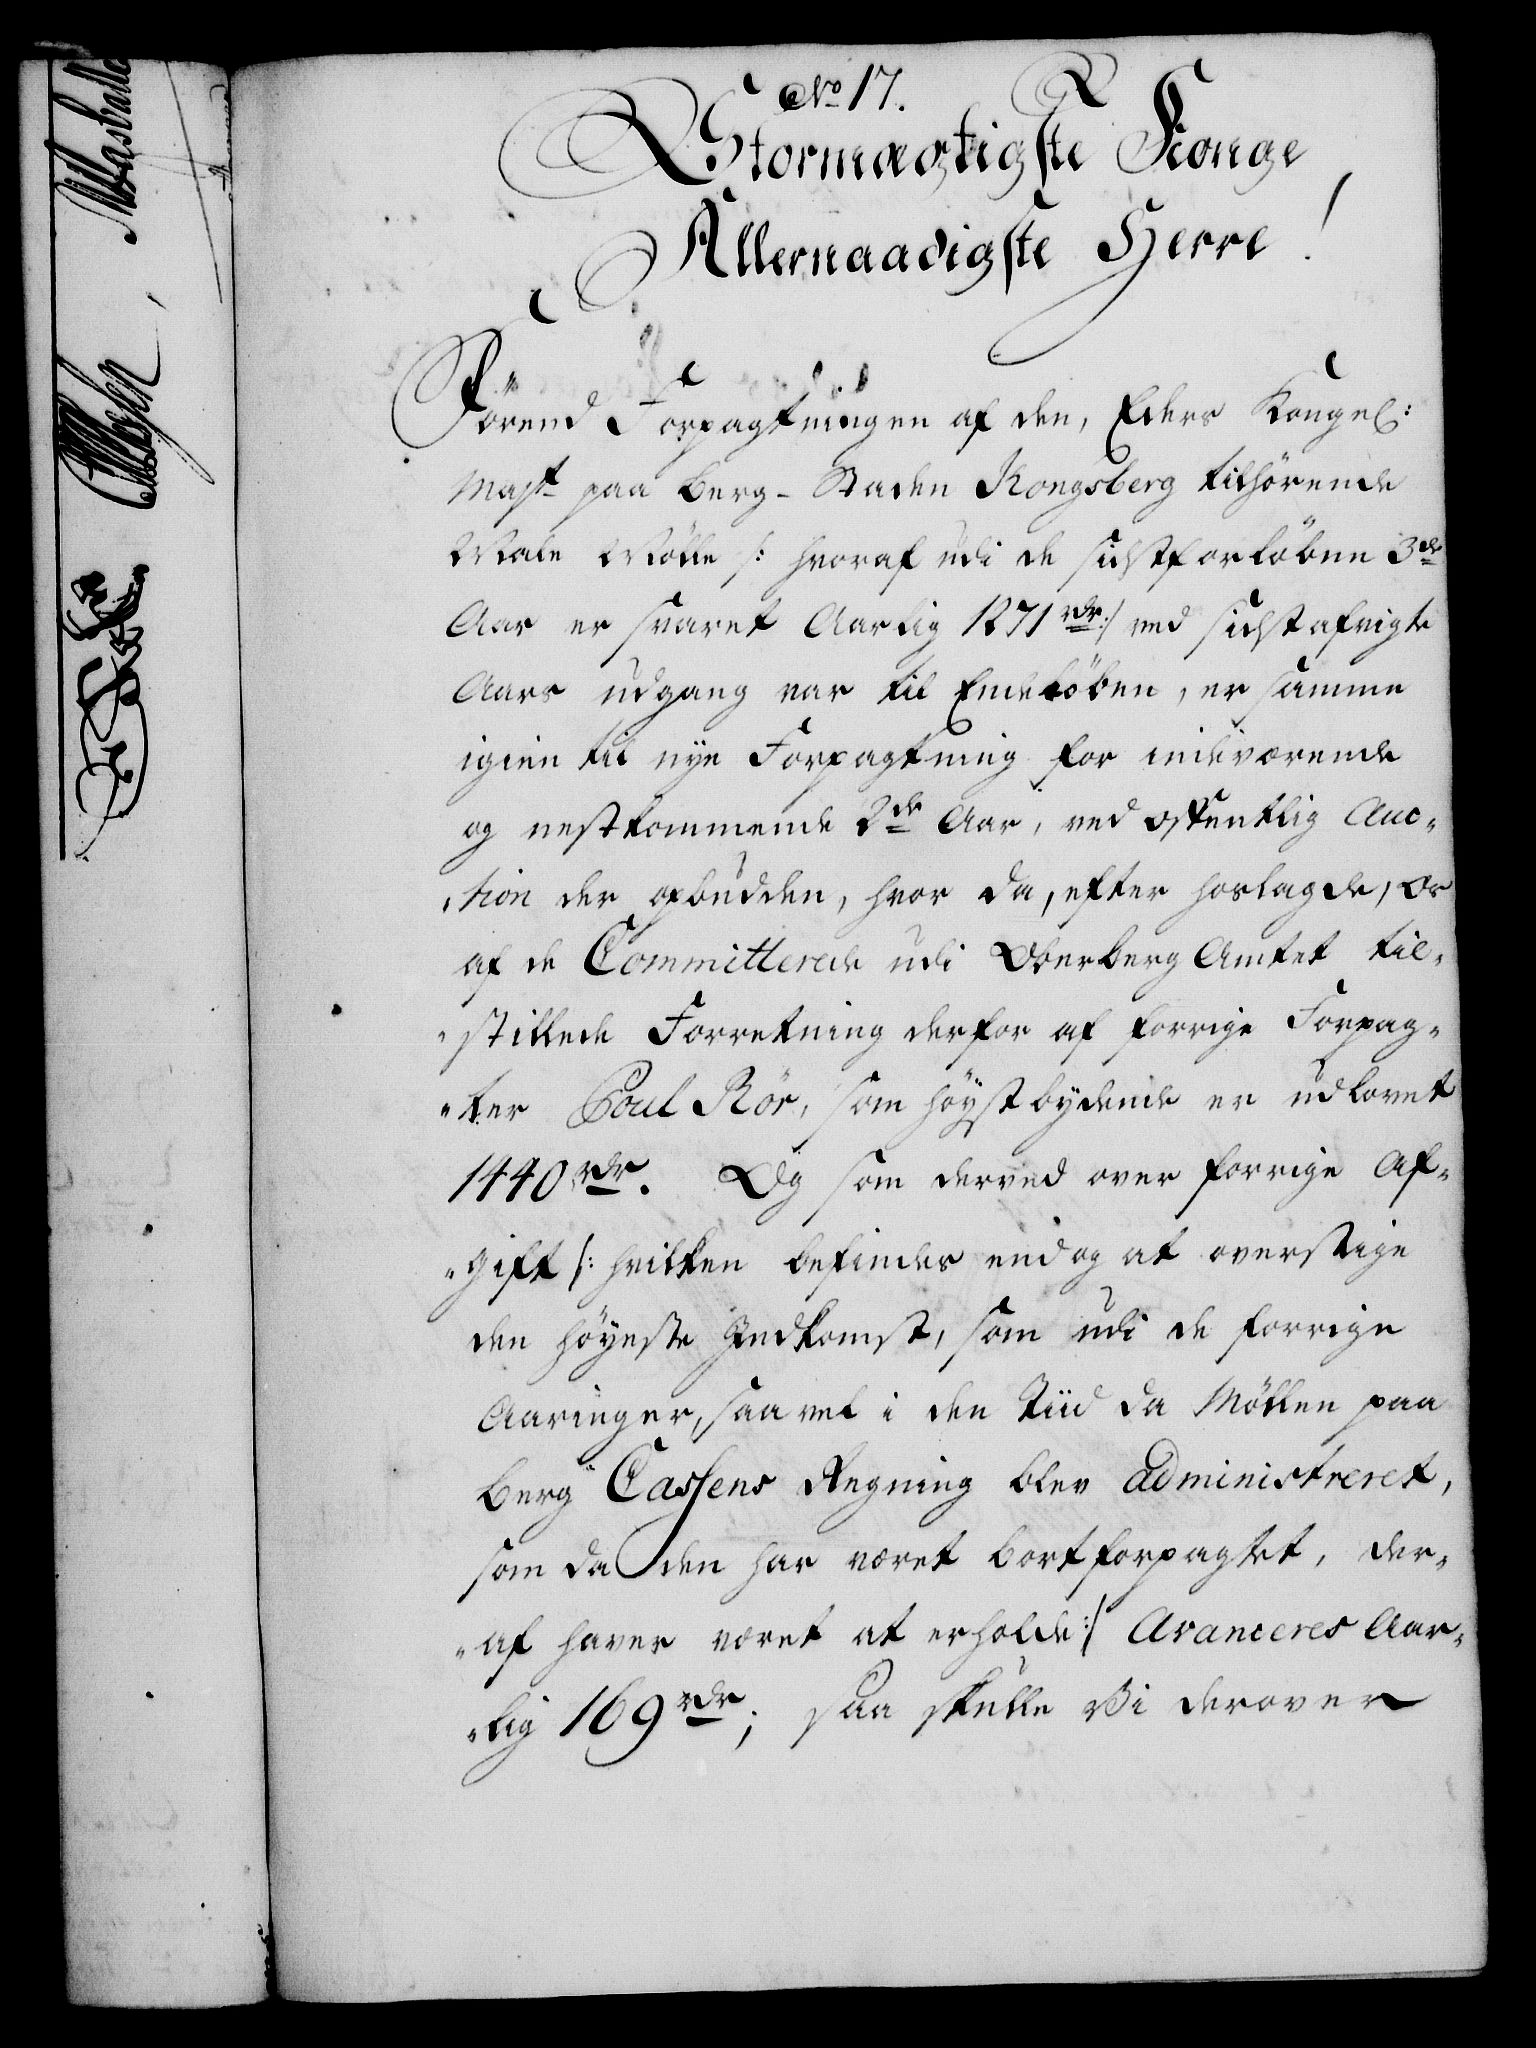 No 17.
Stormægtigste Konge
Allernaadigste Herre!
Sørend Forpagtningen af den, Eders Kongel:
Mayt paa Berg-Staden Kongsberg tilhørende
Male Mölle /: hvoraf udi de sidstforløbne 3de
Aar er svaret Aarlig 1271 rdr :/ ved sidstafvigte
Aars udgang var til Ende løben, er samme
igien til nye Forpagtning for indeværende
og nestkommende 2de Aar, ved offentlig Auc-
tion der opbudden, hvor da, efter hoslagde, os
af de Committerede udi Oberberg Amtet til-
stillede Forretning derfor af forrige Forpag-
ter Poul Rör, som høystbydende er udlovet
1440 rdr. Og som derved over forrige Af-
gift /: hvilken befindes endog at overstige
den høyeste Indkomst, som udi de forrige
Aaringer, saavel i den Tiid da Möllen paa
Berg Cassens Regning blev administreret,
som da den har været bortforpagtet, der-
af haver været at erholde :/ Avanceres Aar-
lig 169 rdr; saa skulle Vi derover